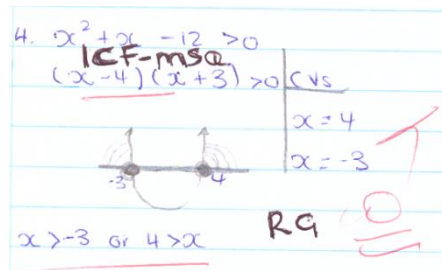 4. x² + x - 12 > 0
ICF-msQ
(x-4)(x+3) > 0
CVs
x = 4
x = -3
-3 4
x > -3 or 4 > x
R9
0